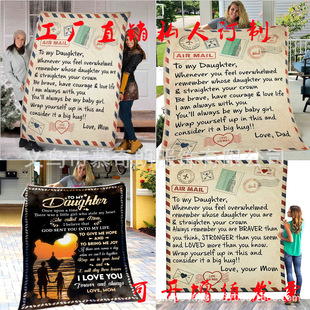 工厂直销私人订制
AIR MAIL
To my Daughter,
Whenever you feel overwhelmed
remember whose daughter you are
& straighten your crown
Be brave, have courage & love life
I am always with you
You'll always be my baby girl.
Wrap yourself up in this and
consider it a big hug!!
Love, Mom
AIR MAIL
To my Daughter,
Whenever you feel overwhelmed,
remember whose daughter you are
& straighten your crown.
Be brave, have courage & love life
I am always with you
You'll always be my baby girl.
Wrap yourself up in this and
consider it a big hug!!
Love, Dad
TO MY
Daughter
Once upon a time
There was a little girl who stole my heart
She called me Mom,
I believe that
GOD SENT YOU INTO MY LIFE
TO GIVE ME HOPE
AND
TO BRING ME JOY
I LOVE YOU
Forever and always
LOVE, MOM
AIR MAIL
To my Daughter,
Whenever you feel overwhelmed,
remember whose daughter you are
& straighten your crown
Always remember you are BRAVER than
you think, STRONGER than you seem
and LOVED more than you know.
Wrap yourself up in this and
consider it a big hug!
Love, your Mom